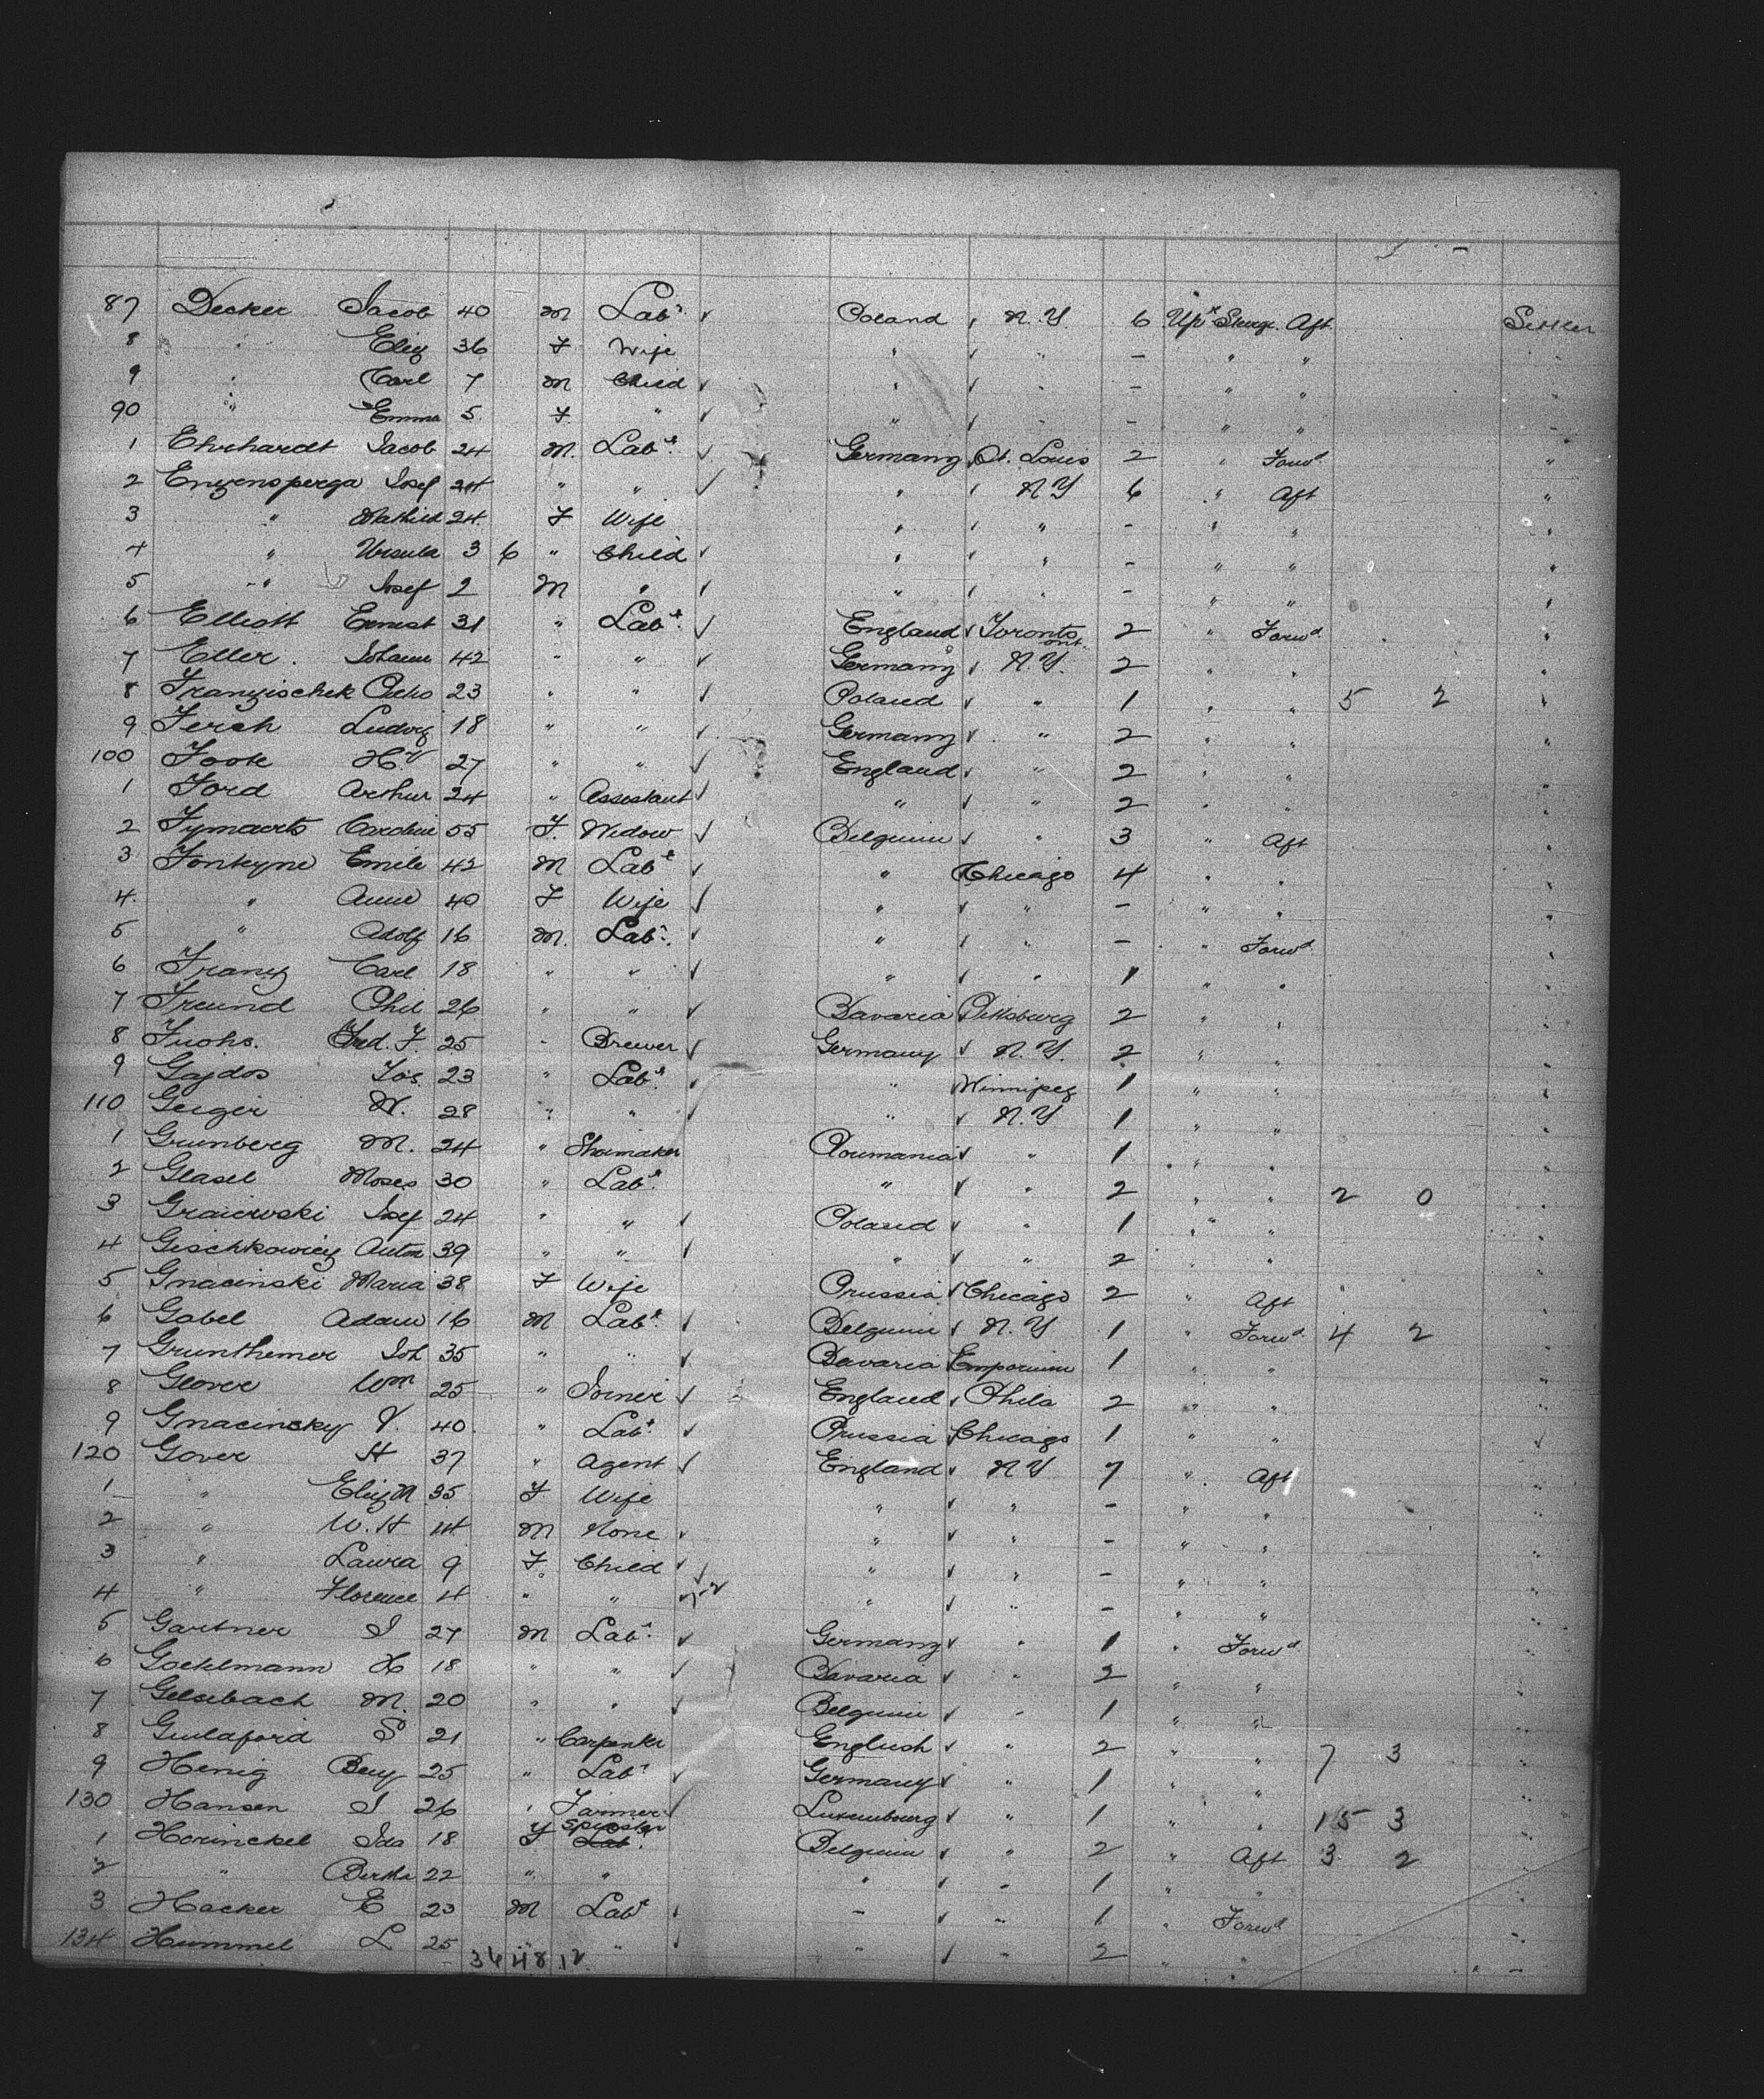 87 Decker Jacob 40 M Labr Poland N.Y. 6 Upr Steerge. Aft Settler
8 " Eliz 36 F Wife " " - " "
9 " Carl 7 M Child " " - " "
90 " Emma 5 F " " " - " "
1 Ehrhardt Jacob 24 M. Labr Germany St. Louis 2 " Forwd "
2 Enzensperga Josef 24 " " " N Y 6 " Aft "
3 " Mathild 24 F Wife " " - " " "
4 " Ursula 3 6 " Child " " - " " "
5 " Josef 2 M " " " - " " "
6 Elliott Ernest 31 " Labr England Toronto Ont. 2 " Forwd "
7 Eller. Johann 42 " " Germany N Y. 2 " " "
8 Franzischek 23 " " Poland " 1 " " 5 2 "
9 Ferch Ludwig 18 " " Germany " 2 " " "
100 Foote H.V 27 " " England " 2 " " "
1 Ford Arthur 24 " Assistant " " 2 " " "
2 Fymaerts Caroline 55 F. Widow Belgium " 3 " Aft "
3 Fonkyne Emile 42 M Labr " Chicago 4 " " "
4. " Anne 40 F Wife " " - " " "
5 " Adolf 16 M. Labr. " " - " Forwd "
6 Franz Carl 18 " " " " 1 " " "
7 Freund Phil 26 " " Bavaria Pittsburg 2 " " "
8 Fuchs. Fred. F. 25 " Brewer Germany N.Y. 2 " " "
9 Gajdos Jos. 23 " Labr " Winnipeg 1 " " "
110 Geiger W. 28 " " " N.Y 1 " " "
1 Grunberg M. 24 " Shoemaker Roumania " 1 " " "
2 Glasel Moses 30 " Labr " " 2 " " 2 0 "
3 Graiewski Josef 24 " " Poland " 1 " " "
4 Gischkowicz Anton 39 " " " " 2 " " "
5 Gnacinski Maria 38 F Wife Prussia Chicago 2 " Aft "
6 Gabel Adam 16 M Labr Belgium N.Y 1 " Forwd 4 2 "
7 Grunthemer Joh 35 " " Bavaria Emporium 1 " " "
8 Glover Wm 25 " Joiner England Phila 2 " " "
9 Gnacinsky V. 40 " Labr Prussia Chicago 1 " " "
120 Gover H 37 " Agent England N Y 7 " Aft "
1 " Eliz M 35 F Wife " " - " " "
2 " W. H 14 M None " " - " " "
3 " Laura 9 F Child " " - " " "
4 " Florence 4 " " " " - " " "
5 Gartner J 27 M Labr Germany " 1 " Forwd "
6 Goehlmann H 18 " " Bavaria " 2 " " "
7 Gelsebach M. 20 " " Belgium " 1 " " "
8 Guilaford S 21 " Carpenter English " 2 " " 7 3 "
9 Henig Benj 25 " Labr Germany " 1 " " "
130 Hansen J 26 " Farmer Luxembourg " 1 " " 15 3 "
1 Horinckel Ida 18 F Spinster Labr. Belgium " 2 " Aft 3 2 "
2 " Bertha 22 " " " " 1 " " "
3 Hacker E 23 M Labr " " 1 " Forwd "
134 Hummel L 25 " " " " 2 " " "
36 48 12